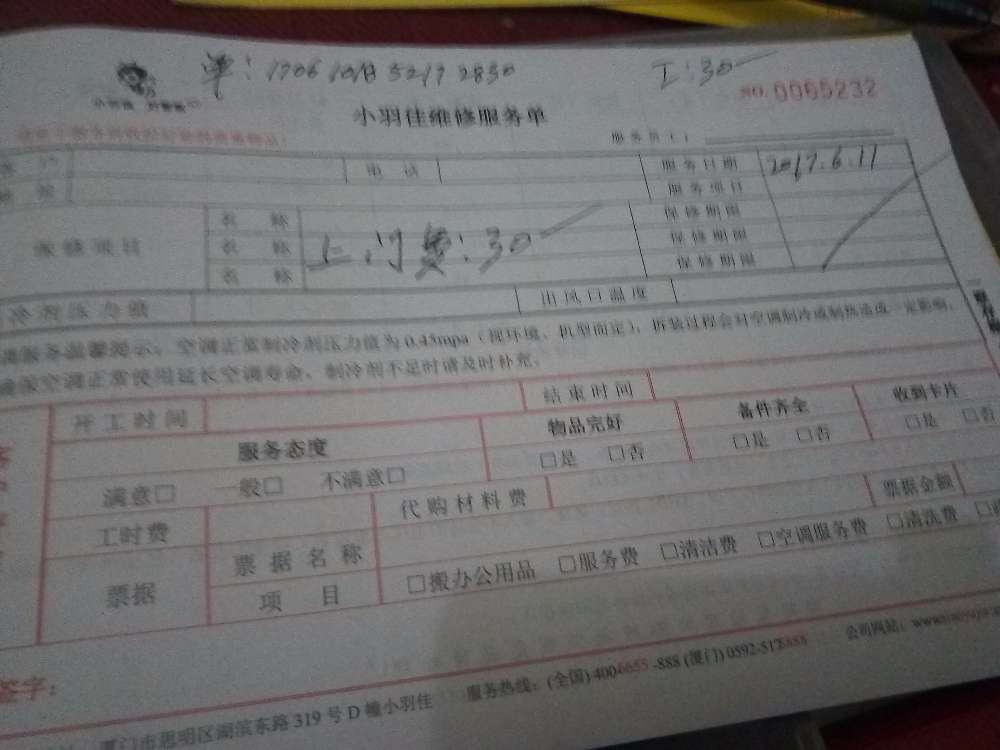 单: 1706 1018 5217 2830 工: 30
NO. 0065232
小羽佳维修服务单
电 话 服务日期 2017.6.11
服务项目
名 称 保修期限
维修项目 名 称 上门费: 30 保修期限
名 称 保修期限
出风口温度
空调正常制冷剂压力值为0.45mpa(视环境、机型而定), 拆装过程会对空调制冷或制热造成一定影响,
确保空调正常使用延长空调寿命, 制冷剂不足时请及时补充。
开工时间 结束时间
服务态度 物品完好 备件齐全 收到卡片
满意□ 一般□ 不满意□ □是 □否 □是 □否 □是 □否
工时费 代购材料费 票据金额
票据 票据名称
项 目 □搬办公用品 □服务费 □清洁费 □空调服务费 □清洗费
签字:
厦门市思明区湖滨东路319号D幢小羽佳 服务热线: (全国) 4006655-888 (厦门) 0592-5178888 公司网站: